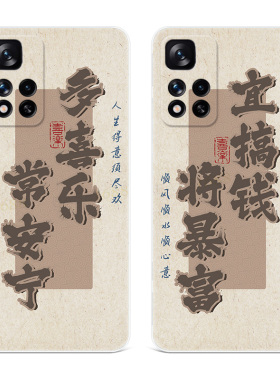 多喜乐
常安宁
喜乐
人生得意须尽欢
宜搞钱
将暴富
喜乐
顺风顺水顺心意